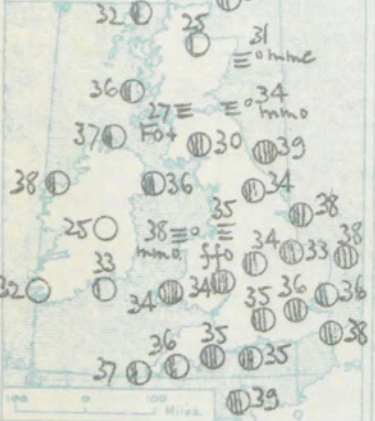 32
25
31
o mme
36
27
o 34
mmo
Fo+
37
30
39
38
36
34
35
38
25
38
o
mmo
ffo
34
33
38
32
33
34
34
35
36
36
36
35
35
38
37
39
100 0 100
Miles